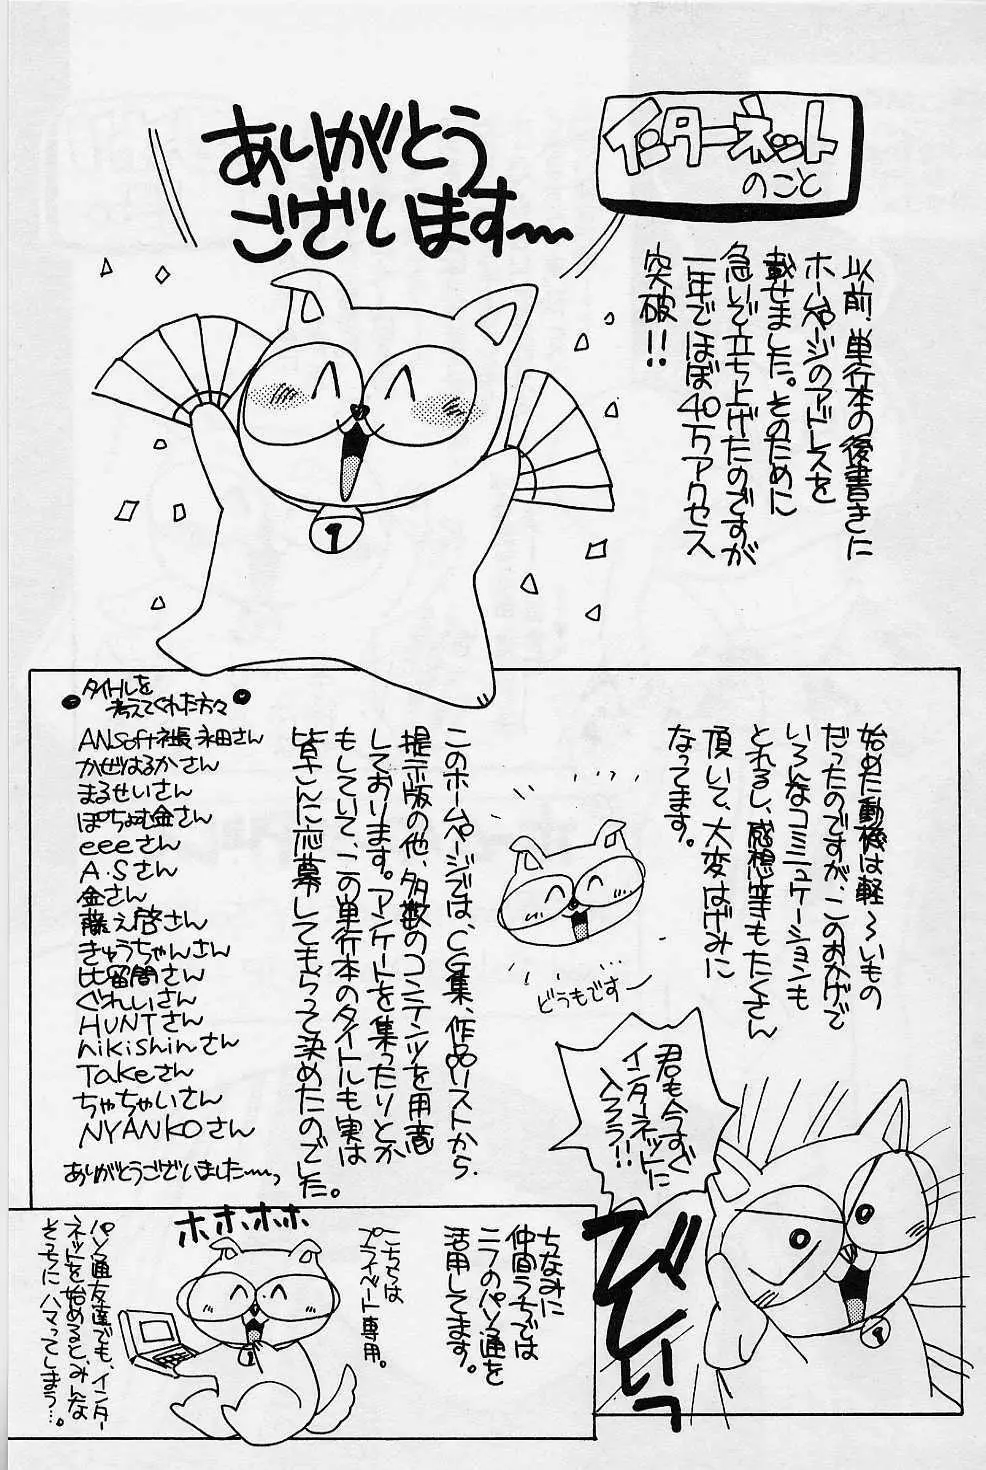 インターネット
のこと
ありがとう
ございます〜
以前、単行本の後書きに
ホームページのアドレスを
載せました。そのために
急いで立ち上げたのですが
一年でほぼ40万アクセス
突破!!
始めた動機は軽〜いもの
だったのですが、このおかげで
いろんなコミュニケーションも
とれるし、感想等もたくさん
頂いて、大変はげみに
なってます。
どうもですー
このホームページでは、CG集、作品リストから、
掲示版の他、多数のコンテンツを用意
しております。アンケートを集ったりとか
もしていて、この単行本のタイトルも実は
皆さんに応募してもらって決めたのでした。
タイトルを
考えてくれた方々
ANSoft社長永田さん
かぜはるかさん
まるせいさん
ぽちょむ金さん
eeeさん
A.Sさん
金さん
藤え啓さん
きゅうちゃんさん
比留間さん
ぐれいさん
HUNTさん
hikishinさん
Takeさん
ちゃちゃいさん
NYANKOさん
ありがとうございました〜っ
君も今すぐ
インターネットに
入ろう!!
びしいっ
ちなみに
仲間うちでは
ニフのパソ通を
活用してます。
こちらは
プライベート専用。
ホホホホ
パソ通友達でも、インター
ネットを始めると、みんな
そっちにハマってしまう…。